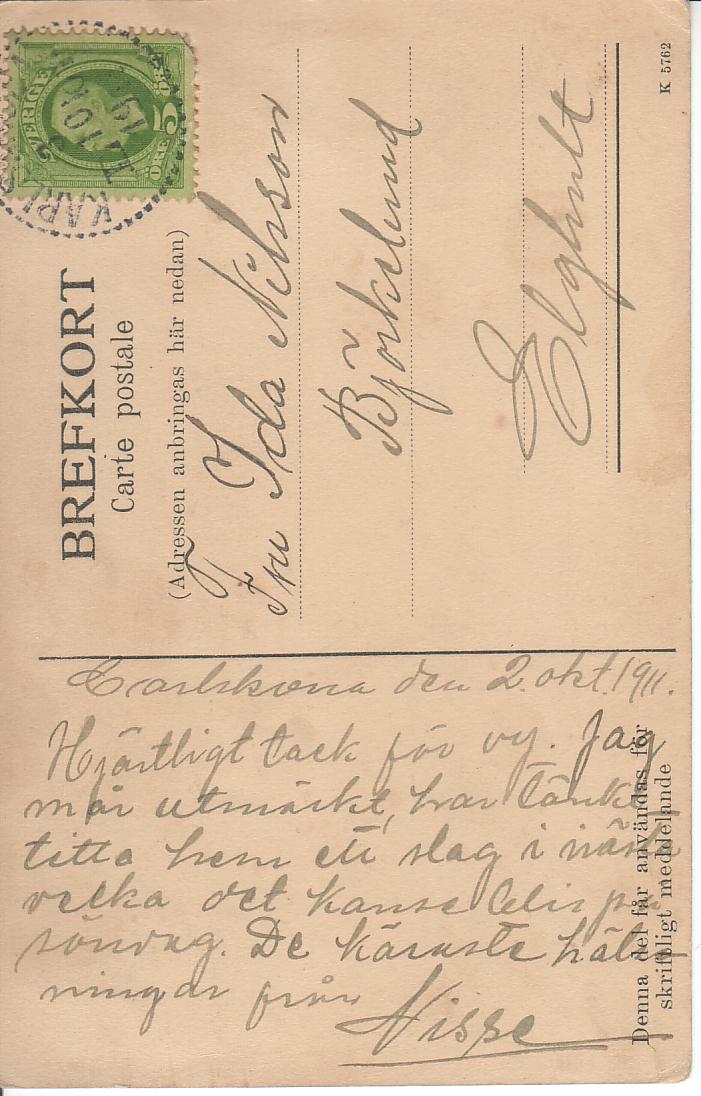 SVERIGE
5
ÖRE
KARLS
BREFKORT
Carte postale
(Adressen anbringas här nedan)
Fru Ida Nilsson
Björkelund
Elghult
K 5762
Carlskrona den 2. okt. 1911.
Hjärtligt tack för vy. Jag
mår utmärkt, har tänkt
titta hem ett slag i nästa
vecka det kanse blir på
söndag. De käraste häls
ningar från
Nisse
Denna del får användas för
skriftligt meddelande